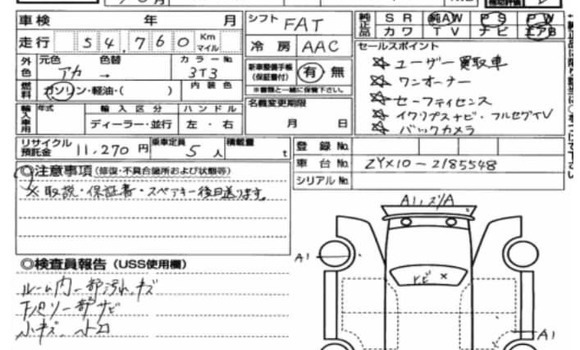 車検 年 月
シフト FAT
純正品 SR 純AW PS PW
カワ TV ナビ エアB
走行 54,760 Km マイル
冷房 AAC
セールスポイント
外色 元色 アカ → 色替
カラーNo 3T3
新車整備手帳 (保証書付) 有 無
※書類と一緒に保管下さい。
☆ ユーザー買取車
☆ ワンオーナー
燃料 ガソリン・軽油・( ) 内装色
☆ セーフティセンス
輸入車用 年式 輸入区分 ハンドル
名義変更期限
☆ イクリプスナビ・フルセグTV
ディーラー・並行 左・右
月 日
☆ バックカメラ
リサイクル預託金 11,270円 乗車定員 5人 積載量 t
登録No.
車台No. ZYX10-2185548
シリアルNo.
◎注意事項 (修復・不具合箇所および状態等)
※ 取説・保証書・スペアキー後日送ります。
A1,ズリA
A1
トビ ×
A1
◎検査員報告 (USS使用欄)
ルーム内一部汚れキズ
下廻り一部サビ
小キズ ヘコ